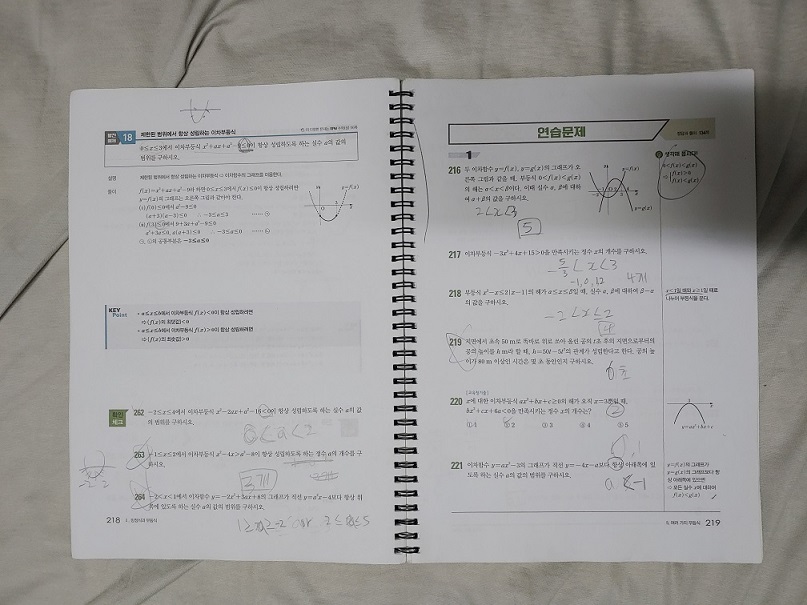 18 제한된 범위에서 항상 성립하는 이차부등식
0≤x≤3에서 이차부등식 x²+ax+a²-9≤0이 항상 성립하도록 하는 실수 a의 값의
범위를 구하시오.
설명 제한된 범위에서 항상 성립하는 이차부등식 ⇨ 이차함수의 그래프를 이용한다.
풀이
y=f(x)의 그래프는 오른쪽 그림과 같아야 한다.
(i) f(0)≤0에서 a²-9≤0
(a+3)(a-3)≤0 ∴ -3≤a≤3 …… ㉠
(ii) f(3)≤0에서 9+3a+a²-9≤0
a²+3a≤0, a(a+3)≤0 ∴ -3≤a≤0 …… ㉡
㉠, ㉡의 공통부분은 -3≤a≤0
y=f(x)
KEY
Point
• a≤x≤b에서 이차부등식 f(x)<0이 항상 성립하려면
⇨ (f(x)의 최댓값)<0
• a≤x≤b에서 이차부등식 f(x)>0이 항상 성립하려면
⇨ (f(x)의 최솟값)>0
확인
체크
262 -2≤x≤4에서 이차부등식 x²-2ax+a²-16≤0이 항상 성립하도록 하는 실수 a의 값
의 범위를 구하시오.
0≤a≤2
263 -1≤x≤2에서 이차부등식 x²-4x>a²-8이 항상 성립하도록 하는 정수 a의 개수를 구
하시오.
3개
264
쪽에 있도록 하는 실수 a의 값의 범위를 구하시오.
218
연습문제
1
216 두 이차함수 y=f(x), y=g(x)의 그래프가 오
른쪽 그림과 같을 때, 부등식 0<f(x)<g(x)
의 해는 α<x<β이다. 이때 실수 α, β에 대하
여 α+β의 값을 구하시오.
2<x<3
5
y=f(x)
y=g(x)
생각해 봅시다!
0<f(x)<g(x)
⇨ f(x)>0
f(x)<g(x)
217 이차부등식 -3x²+4x+15>0을 만족시키는 정수 x의 개수를 구하시오.
-5/3<x<3
-1,0,1,2 4개
218 부등식 x²-x≤2|x-1|의 해가 α≤x≤β일 때, 실수 α, β에 대하여 β-α
의 값을 구하시오.
-2≤x≤2
4
x<1일 때와 x≥1일 때로
나누어 부등식을 푼다.
219 지면에서 초속 50 m로 똑바로 위로 쏘아 올린 공의 t초 후의 지면으로부터의
공의 높이를 h m라 할 때, h=50t-5t²의 관계가 성립한다고 한다. 공의 높
이가 80 m 이상인 시간은 몇 초 동안인지 구하시오.
6초
220 x에 대한 이차부등식 ax²+bx+c≥0의 해가 오직 x=3뿐일 때,
bx²+cx+6a<0을 만족시키는 정수 x의 개수는?
① 1 ② 2 ③ 3 ④ 4 ⑤ 5
②
y=ax²+bx+c
221 이차함수 y=ax²-3의 그래프가 직선 y=-4x-a보다 항상 아래쪽에 있
도록 하는 실수 a의 값의 범위를 구하시오.
a<-1
y=f(x)의 그래프가
y=g(x)의 그래프보다 항
상 아래쪽에 있으면
⇨ 모든 실수 x에 대하여
f(x)<g(x)
219